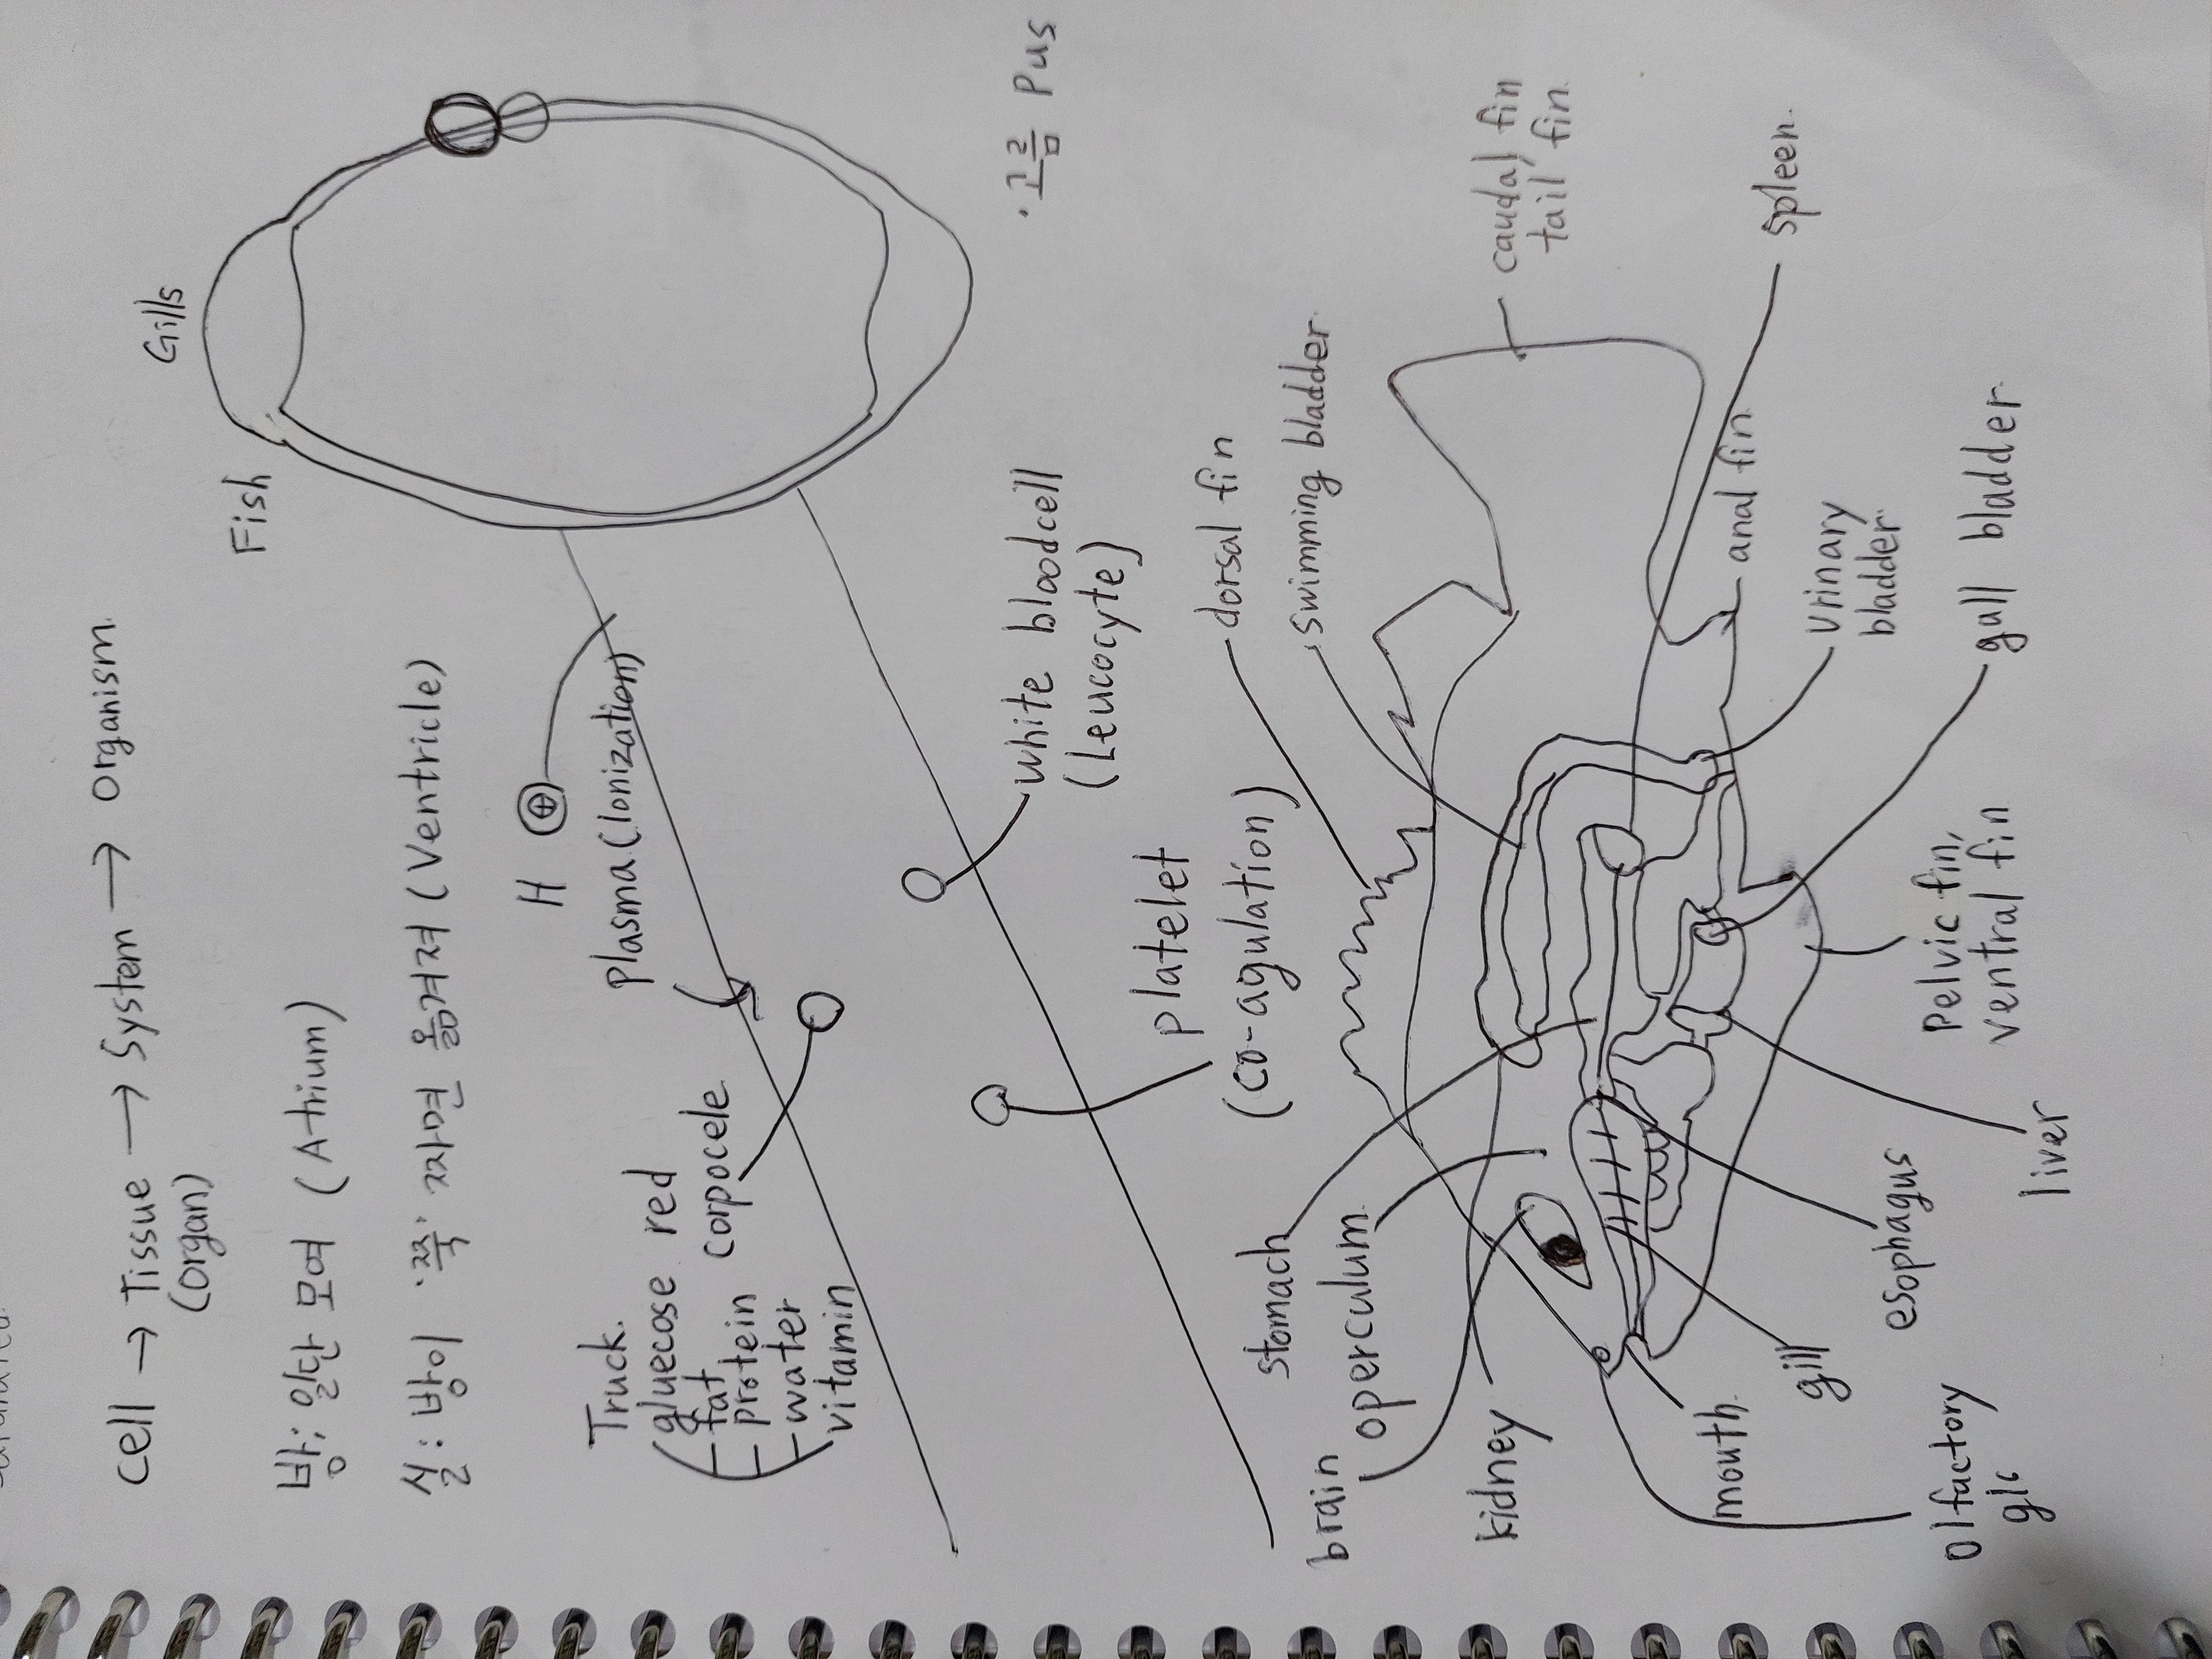 Cell → Tissue → System → Organism.
(Organ)
방; 일단 모여 (Atrium)
실: 방이 '쭉' 짜면 옮겨져 (Ventricle)
Fish
Gills
H ⊕
Plasma (Ionization)
Truck.
gluecose
fat
protein
water
vitamin
red
corpocele
white bloodcell
(Leucocyte)
· 고름 Pus
platelet
(co-agulation)
dorsal fin
swimming bladder
caudal fin
tail fin
stomach
operculum
brain
kidney
spleen
anal fin
urinary
bladder
gall bladder
pelvic fin,
ventral fin
liver
esophagus
gill
mouth
olfactory